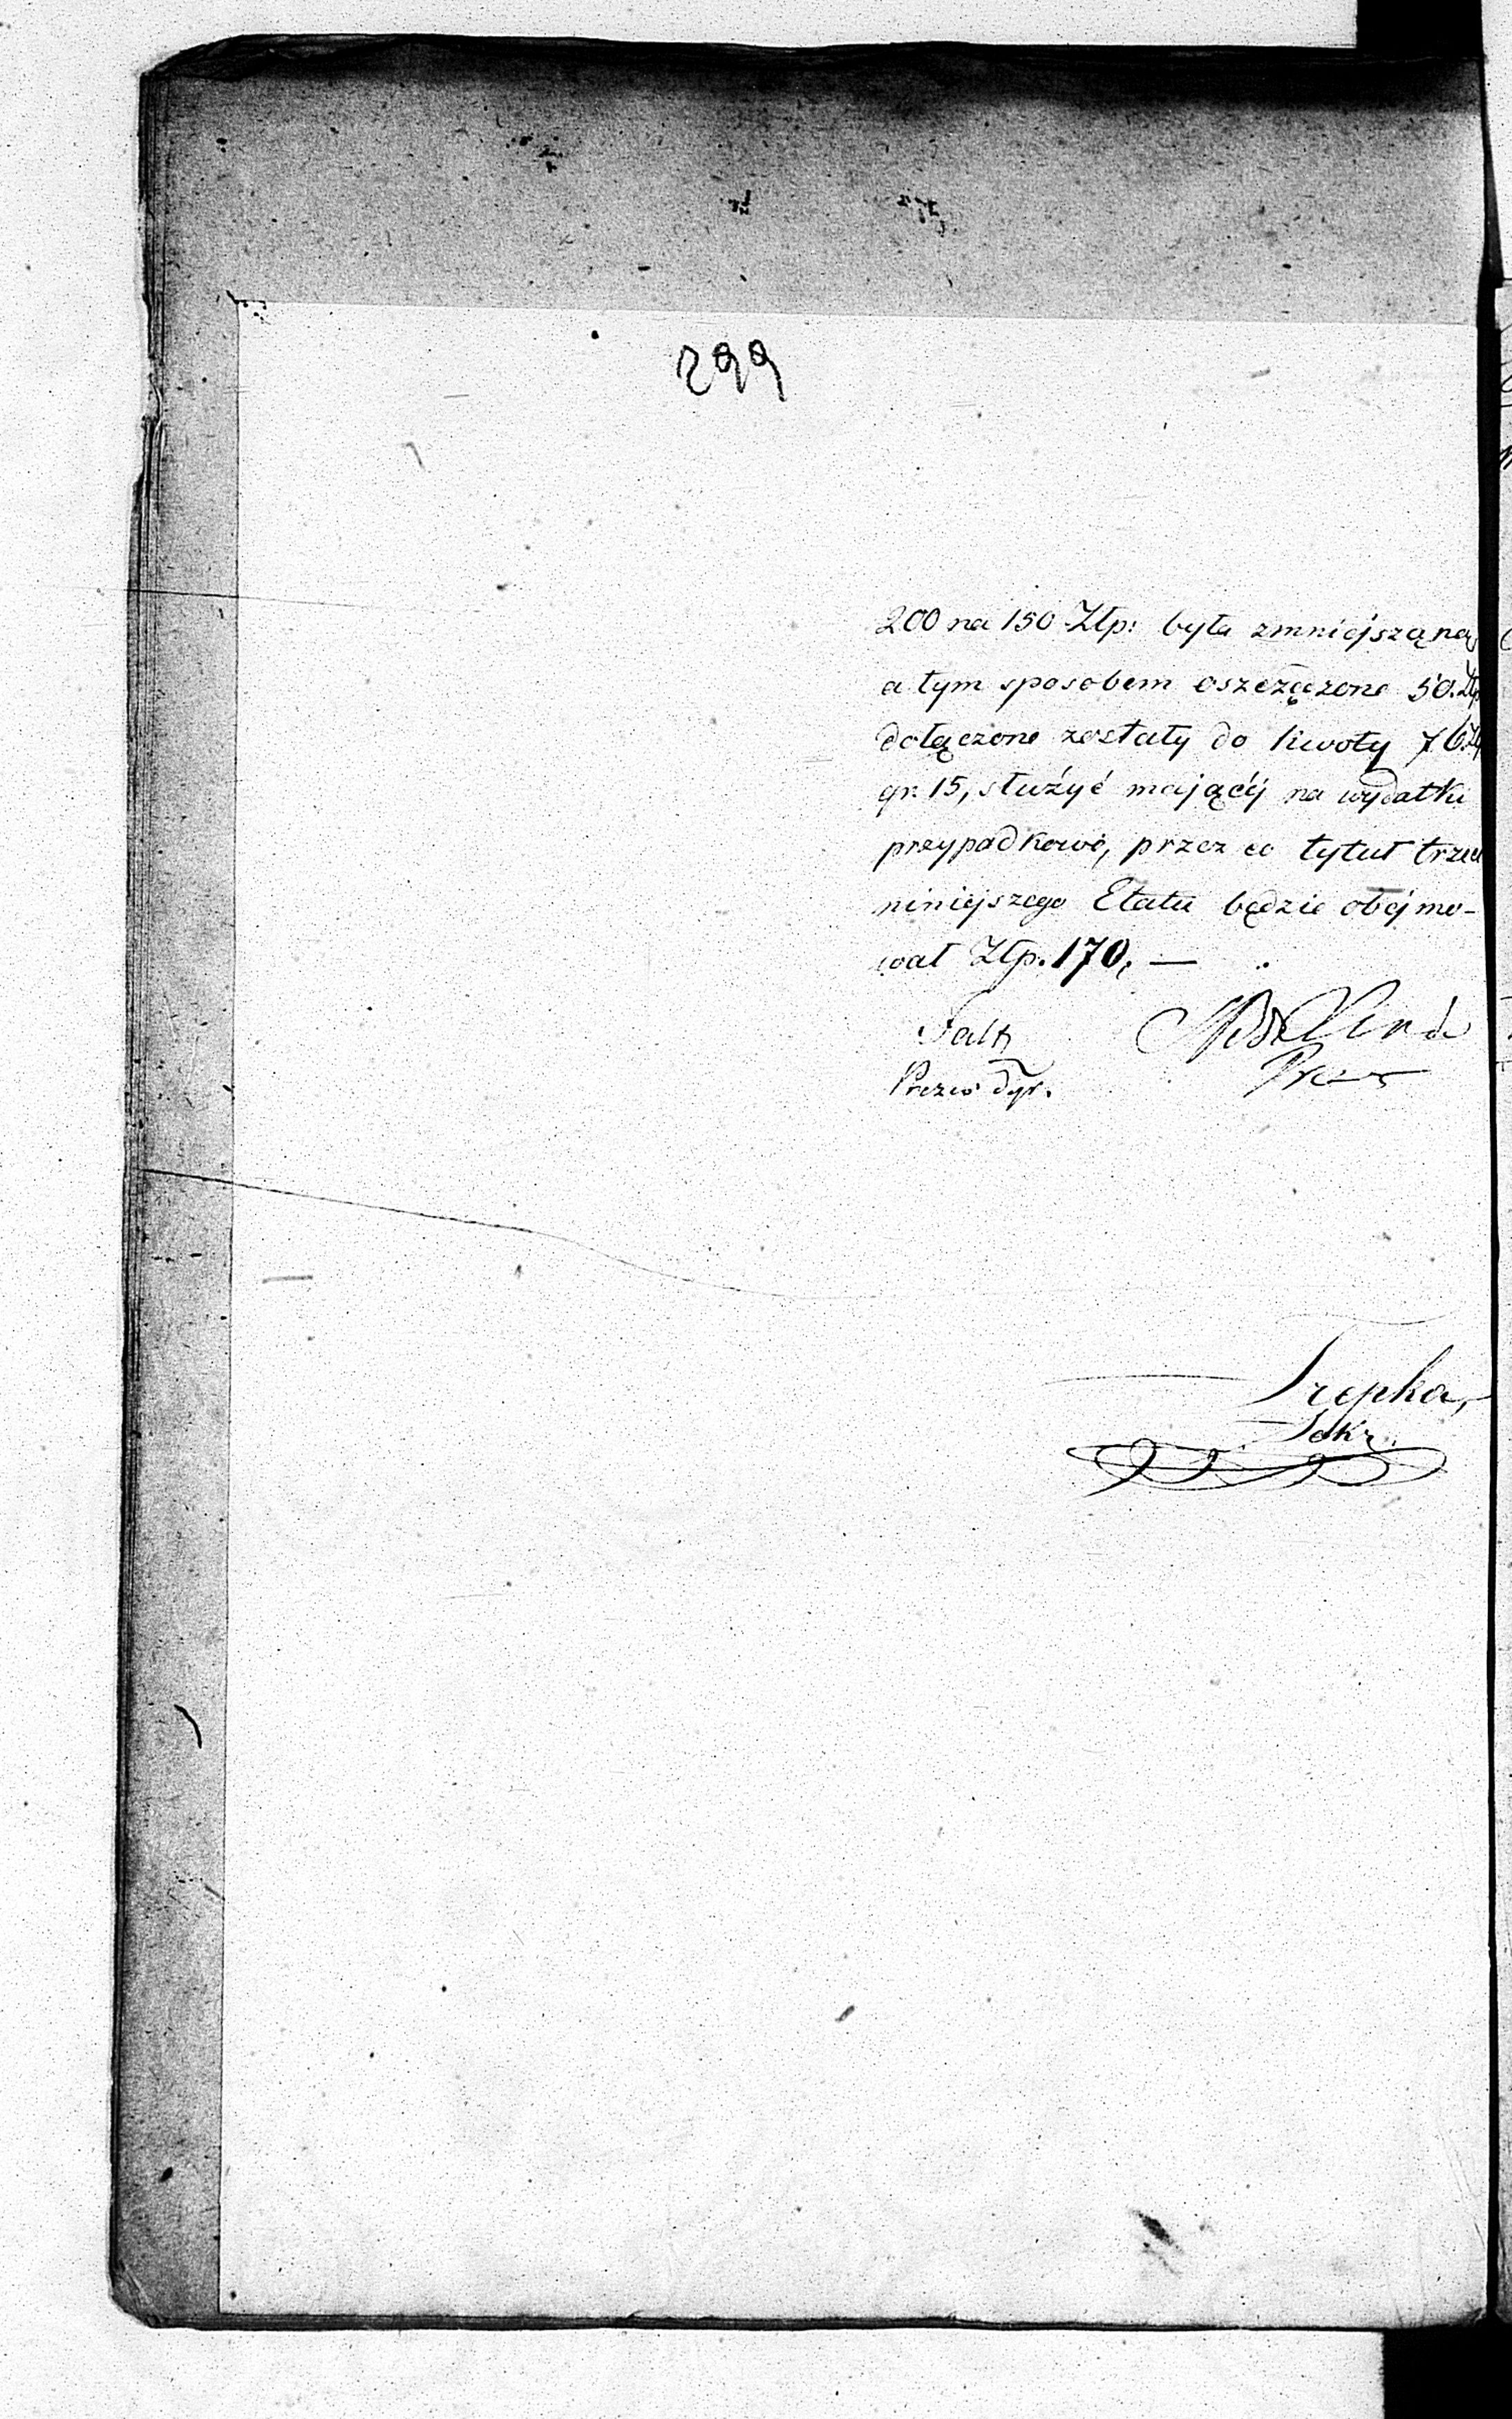 299
200 na 150 Złp: była zmniejsząną
a tym sposobem oszczędzone 50. Złp
dołączone zostały do kwoty 76 Złp
gr. 15, służyć mającéj na wydatki
przypadkowé, przez co tytuł trzeci
niniejszego Etatu będzie obéjmo-
wał Złp. 170, —
Falk
Prezes Dyr. Prezes
Trepka,
Sekr.